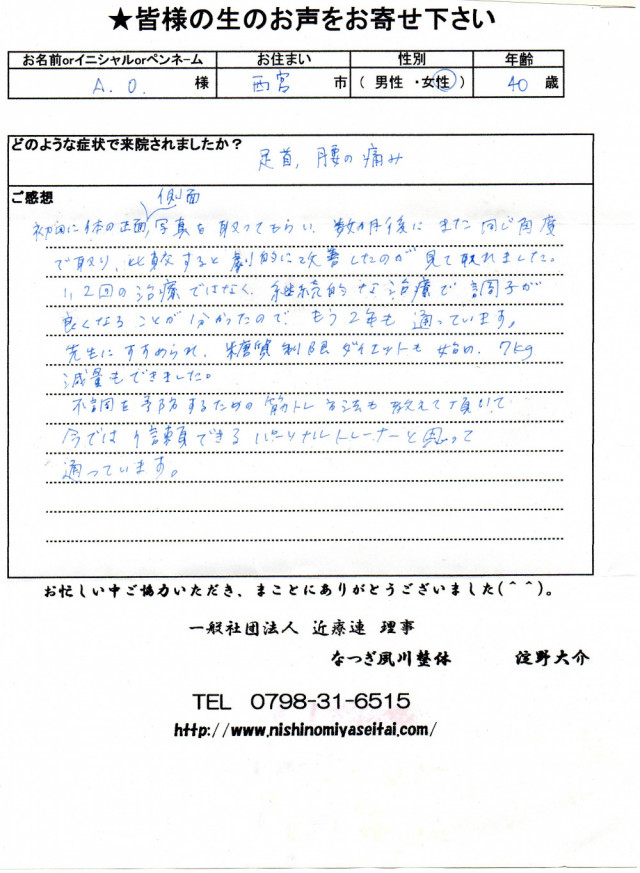 ★皆様の生のお声をお寄せ下さい
お名前orイニシャルorペンネーム お住まい 性別 年齢
A.O. 様 西宮 市 ( 男性 ・女性 ) 40 歳
どのような症状で来院されましたか?
足首, 腰の痛み
ご感想
側面
初回に体の正面, 写真を取ってもらい、数か月後にまた同じ角度
で取り、比較すると劇的に改善したのが見て取れました。
1,2回の治療ではなく、継続的な治療で調子が
良くなることが分かったので、もう2年も通っています。
先生にすすめられ、糖質制限ダイエットも始め、7kg
減量もできました。
不調を予防するための筋トレ方法も教えて頂いて
今では信頼できるパーソナルトレーナーと思って
通っています。
お忙しい中ご協力いただき、まことにありがとうございました(^^)。
一般社団法人 近療連 理事
なつぎ夙川整体 淀野大介
TEL 0798-31-6515
http://www.nishinomiyaseitai.com/